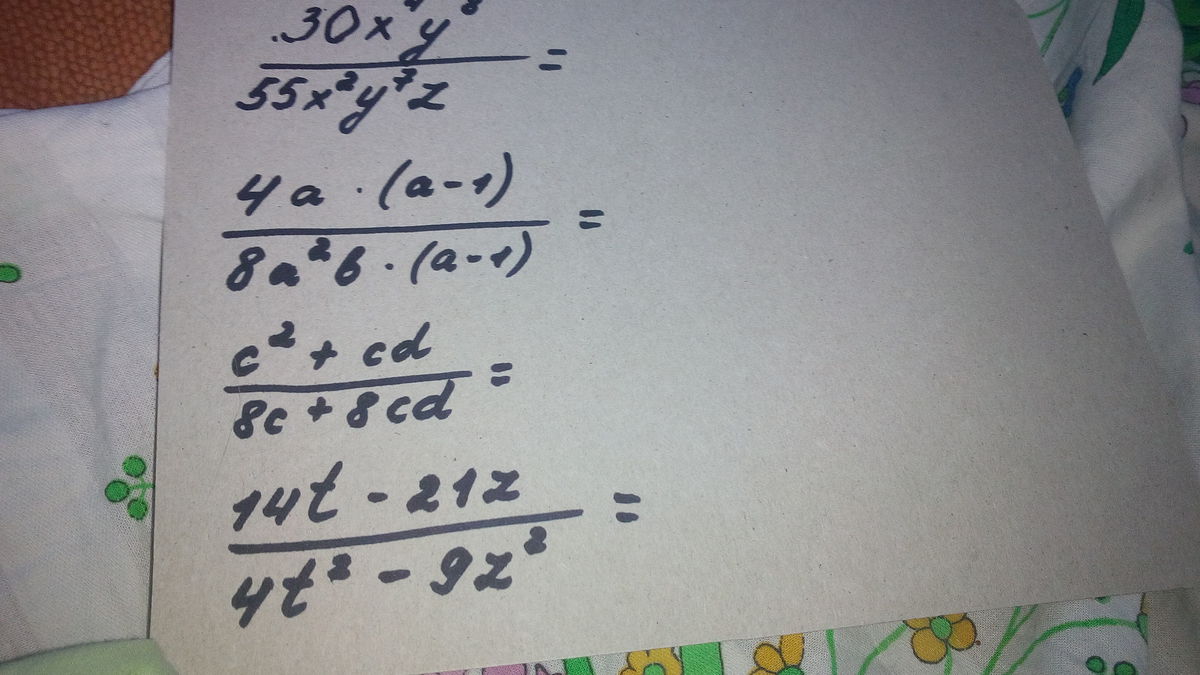 30x⁴y⁸
55x²y⁷z =
4a · (a-1)
8a²b · (a-1) =
c² + cd
8c + 8cd =
14t - 21z
4t² - 9z² =